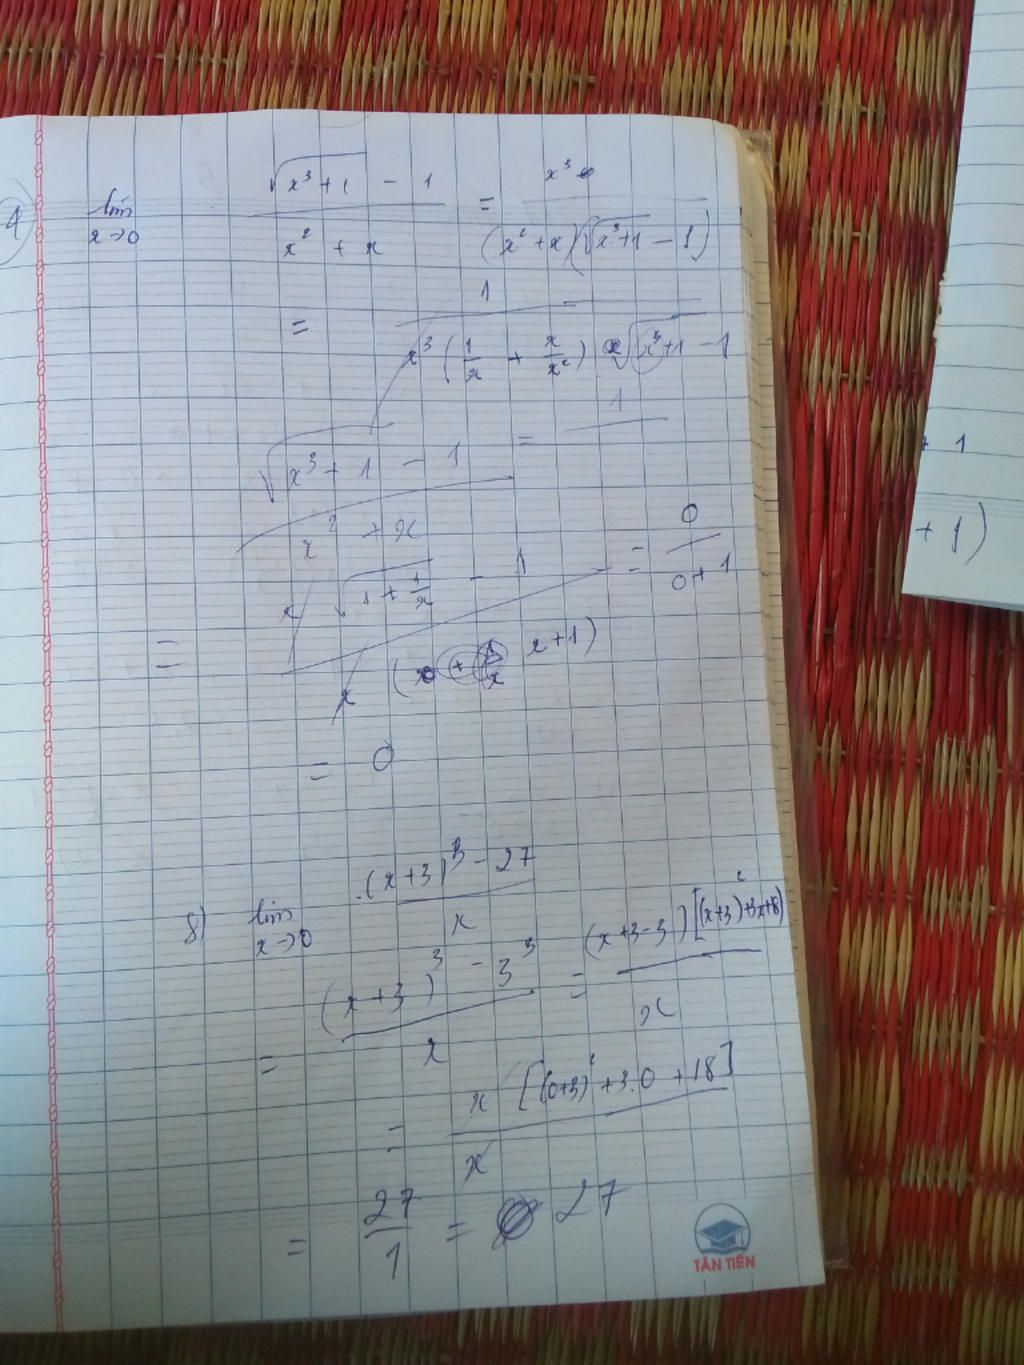 4) lim x→0 (√(x³+1) - 1)/(x² + x) = x³/((x²+x)(√(x³+1) - 1))
= 1/(x³(1/x + x/x²) √(x³+1) - 1
(√(x³+1) - 1)/(x² + x) = 1/
= (x √(1+1/x) - 1)/(x (x+1)) = 0/(0+1)
= 0
8) lim x→0 ((x+3)³ - 27)/x
= ((x+3)³ - 3³)/x = ((x+3-3)[(x+3)²+3x+18])/x
= (x [(0+3)²+3.0+18])/x
= 27/1 = 27
TÂN TIẾN
+ 1
+ 1)